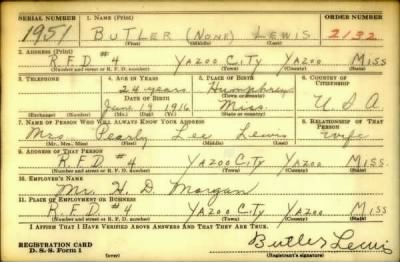 SERIAL NUMBER 1. NAME (Print) ORDER NUMBER
1951 BUTLER (NONE) LEWIS 2132
(First) (Middle) (Last)
2. ADDRESS (Print)
R.F.D #4 YAZOO CITY YAZOO MISS
(Number and street or R. F. D. number) (Town) (County) (State)
3. TELEPHONE 4. AGE IN YEARS 5. PLACE OF BIRTH 6. COUNTRY OF CITIZENSHIP
24 years Humphrey
DATE OF BIRTH (Town or county)
June 19 1916 Miss. U S A
(Exchange) (Number) (Mo.) (Day) (Yr.) (State or country)
7. NAME OF PERSON WHO WILL ALWAYS KNOW YOUR ADDRESS 8. RELATIONSHIP OF THAT PERSON
Mrs. Pearly Lee Lewis Wife
(Mr., Mrs., Miss) (First) (Middle) (Last)
9. ADDRESS OF THAT PERSON
R.F.D. #4 YAZOO CITY YAZOO MISS
(Number and street or R. F. D. number) (Town) (County) (State)
10. EMPLOYER'S NAME
Mr. H. D. Morgan
11. PLACE OF EMPLOYMENT OR BUSINESS
R.F.D. #4 YAZOO CITY YAZOO MISS.
(Number and street or R. F. D. number) (Town) (County) (State)
I AFFIRM THAT I HAVE VERIFIED ABOVE ANSWERS AND THAT THEY ARE TRUE.
REGISTRATION CARD
D. S. S. Form 1 (over) Butler Lewis
(Registrant's signature)